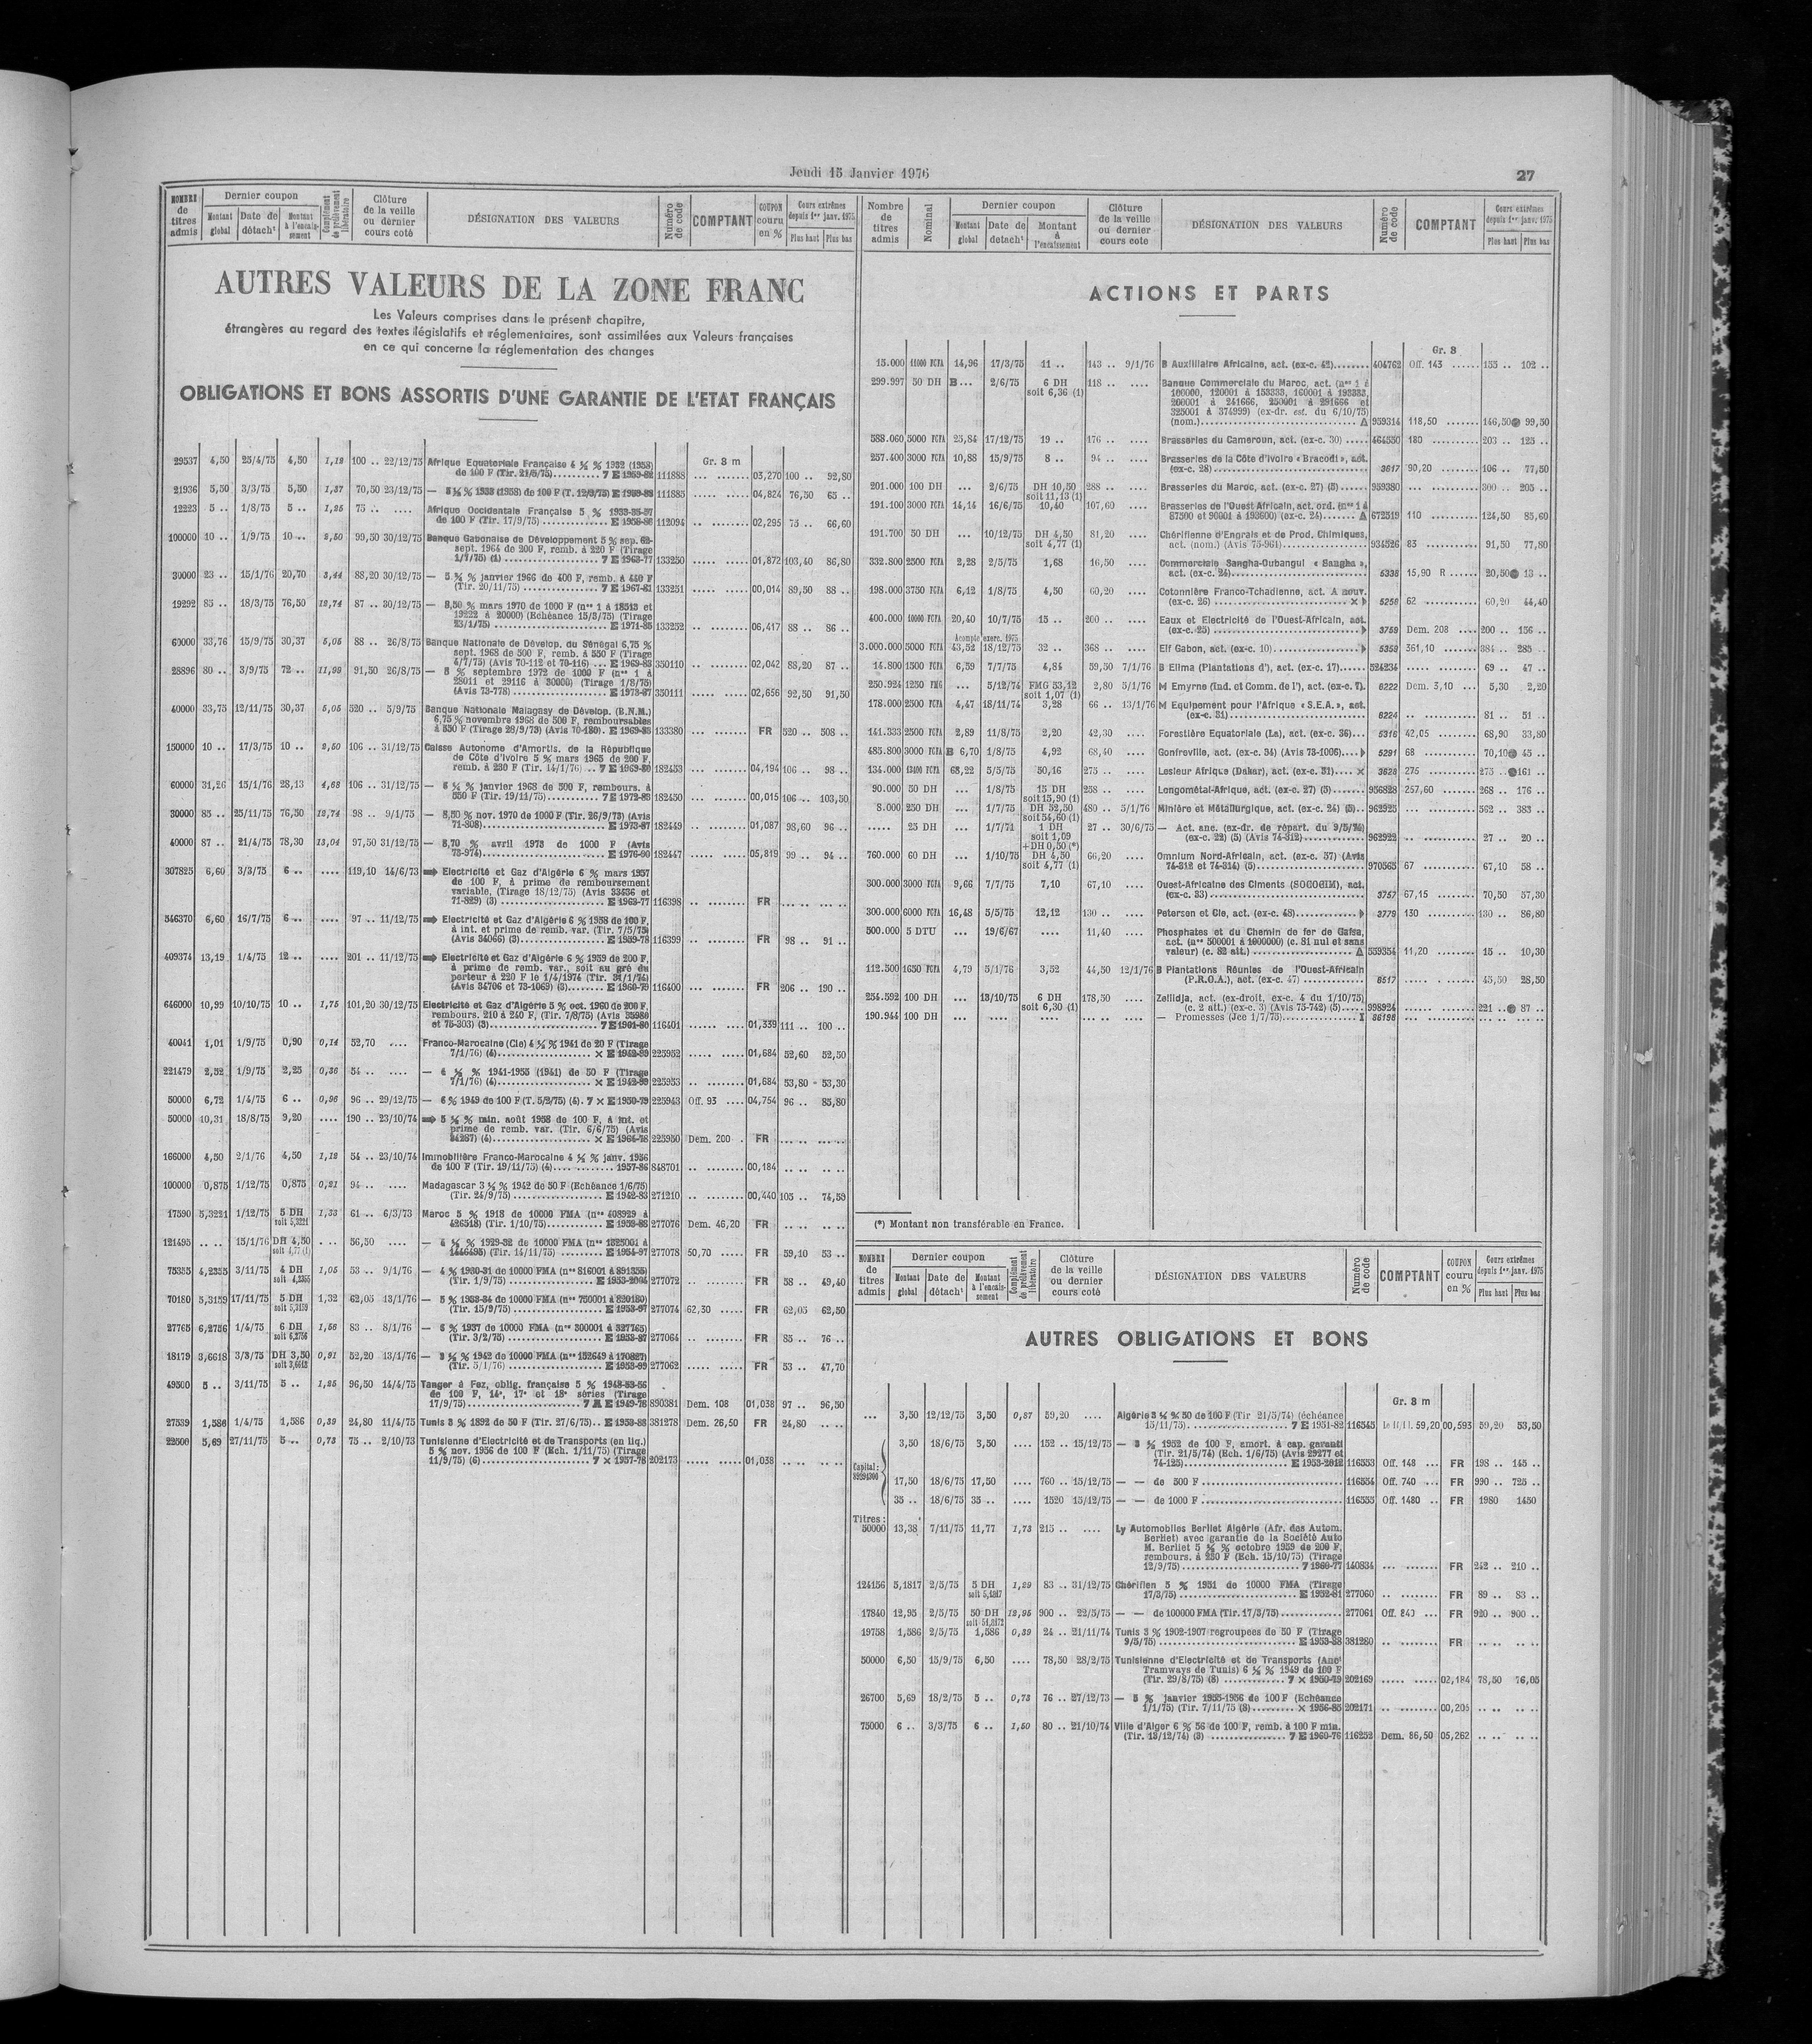 Jeudi 15 Janvier 1976
27
AUTRES VALEURS DE LA ZONE FRANC
Les Valeurs comprises dans le présent chapitre,
étrangères au regard des textes législatifs et réglementaires, sont assimilées aux Valeurs françaises
en ce qui concerne la réglementation des changes
OBLIGATIONS ET BONS ASSORTIS D'UNE GARANTIE DE L'ETAT FRANÇAIS
Gr. 8 m
29537 4,50 25/4/75 4,50 1,12 100 .. 22/12/75 Afrique Equatoriale Française 4 ½ % 1932 (1958)
21936 5,50 3/3/75 5,50 1,37 70,50 23/12/75
12223 5 .. 1/8/75 5 .. 1,25 75 .. .... Afrique Occidentale Française 5 %
de 100 F (Tir. 17/9/75) 112094 02,295 75 .. 66,60
100000 10 .. 1/9/75 10 .. 2,50 99,50 30/12/75 Banque Gabonaise de Développement 5 % sep. 62-
sept. 1964 de 200 F, remb. à 220 F (Tirage
133250 01,872 103,40 86,80
30000 23 .. 15/1/76 20,70 3,44 88,20 30/12/75
(Tir. 20/11/75) 7 E 1967-81 133251 00,014 89,50 88 ..
19292 85 .. 18/3/75 76,50 12,74 87 .. 30/12/75 — 8,50 % mars 1970 de 1000 F
133252 06,417 88 .. 86 ..
60000 33,76 15/9/75 30,37 5,05 88 .. 26/8/75 Banque Nationale de Dévelop. du Sénégal 6,75 %
sept. 1968 de 500 F, remb. à 550 F (Tirage
4/7/75) (Avis 70-112 et 70-116) ... E 1969-83 350110 02,042 88,20 87 ..
28896 80 .. 3/9/75 72 .. 11,99 91,50 26/8/75 — 8 % septembre 1972 de 1000 F (nos 1 à
28011 et 29116 à 30000) (Tirage 1/8/75)
(Avis 73-778) E 1973-87 350111 02,656 92,50 91,50
40000 33,75 12/11/75 30,37 5,05 520 .. 5/9/75 Banque Nationale Malagasy de Dévelop. (B.N.M.)
6,75 % novembre 1968 de 500 F, remboursables
133380 FR 520 .. 508 ..
150000 10 .. 17/3/75 10 .. 2,50 106 .. 31/12/75 Caisse Autonome d'Amortis. de la République
de Côte d'Ivoire 5 % mars 1965 de 200 F,
remb. à 230 F (Tir. 14/1/76) .. 182453 04,194 106 .. 98 ..
60000 31,26 15/1/76 28,13 4,68 106 .. 31/12/75 — 6 ¼ % janvier 1968 de 500 F, rembours. à
550 F (Tir. 19/11/75) 7 E 1972-83 182450 00,015 106 .. 103,50
30000 85 .. 25/11/75 76,50 12,74 98 .. 9/1/75 — 8,50 % nov. 1970 de 1000 F (Tir. 26/9/73) (Avis
71-808) E 1973-87 182449 01,087 98,60 96 ..
40000 87 .. 21/4/75 78,30 13,04 97,50 31/12/75 — 8,70 % avril 1973 de 1000 F (Avis
73-974) E 1976-90 182447 05,819 99 .. 94 ..
307825 6,60 3/3/75 6 .. .... 119,10 14/6/73 Electricité et Gaz d'Algérie 6 % mars 1957
de 100 F, à prime de remboursement
variable, (Tirage 18/12/75)
116398 FR
546370 6,60 16/7/75 6 .. .... 97 .. 11/12/75 Electricité et Gaz d'Algérie 6 % 1958 de 100 F,
à int. et prime de remb. var. (Tir. 7/5/75)
(Avis 34066) (3) E 1959-78 116399 FR 98 .. 91 ..
409374 13,19 1/4/75 12 .. .... 201 .. 11/12/75 Electricité et Gaz d'Algérie 6 % 1959 de 200 F,
à prime de remb. var., soit au gré du
porteur à 220 F le 1/4/1974
(Avis 34706 et 73-1069) (3) E 1960-79 116400 FR 206 .. 190 ..
646000 10,99 10/10/75 10 .. 1,75 101,20 30/12/75 Electricité et Gaz d'Algérie 5 % oct. 1960 de 200 F,
rembours. 210 à 240 F, (Tir. 7/8/75)
et 75-303) (3) 116401 01,339 111 .. 100 ..
40041 1,01 1/9/75 0,90 0,14 52,70 .... Franco-Marocaine (Cie) 4 ½ % 1941 de 20 F (Tirage
7/1/76) (4) 225952 01,684 52,60 52,50
221479 2,52 1/9/75 2,25 0,36 54 .. .... — 4 ½ % 1941-1955 (1941) de 50 F (Tirage
7/1/76) (4) 225953 01,684 53,80 53,30
50000 6,72 1/4/75 6 .. 0,96 96 .. 29/12/75 — 6 % 1949 de 100 F (T. 5/2/75) (4). 7 × E 1950-79 225943 Off. 93 .... 04,754 96 .. 85,80
50000 10,31 18/8/75 9,20 .... 190 .. 23/10/74 août 1958 de 100 F, à int. et
prime de remb. var. (Tir. 6/6/75) (Avis
225950 Dem. 200 . FR
166000 4,50 2/1/76 4,50 1,12 54 .. 23/10/74 Immobilière Franco-Marocaine 4 ½ % janv. 1956
de 100 F (Tir. 19/11/75) (4) 1957-86 848701 00,184
100000 0,875 1/12/75 0,875 0,21 94 .. .... Madagascar 3 ½ % 1942 de 50 F (Echéance 1/6/75)
(Tir. 24/9/75) E 1942-83 271210 00,440 105 .. 74,59
17590 5,3221 1/12/75 5 DH soit 5,3221 1,33 61 .. 6/3/73 Maroc 5 % 1918 de 10000 FMA (nos 408929 à
426518) (Tir. 1/10/75) 277076 Dem. 46,20 FR
121495 .. .. 15/1/76 DH 4,50 soit 4,77 (1) .. .. 56,50 .... — 4 ½ % 1929-32 de 10000 FMA
(Tir. 14/11/75) E 1954-97 277078 50,70 FR 59,10 53 ..
75355 4,2355 3/11/75 4 DH soit 4,2355 1,05 53 .. 9/1/76 — 4 % 1930-31 de 10000 FMA (nos 816001 à 891355)
(Tir. 1/9/75) 277072 FR 58 .. 49,40
70180 5,3159 17/11/75 5 DH soit 5,3159 1,32 62,05 13/1/76 — 5 % 1933-34 de 10000 FMA (nos 750001 à 820180)
(Tir. 15/9/75) 277074 62,30 FR 62,05 62,50
27765 6,2756 1/4/75 6 DH soit 6,2756 1,56 83 .. 8/1/76 — 6 % 1937 de 10000 FMA (nos 300001 à 327765)
(Tir. 3/2/75) 277064 FR 85 .. 76 ..
18179 3,6618 3/3/75 DH 3,50 soit 3,6618 0,91 52,20 13/1/76
(Tir. 5/1/76) 277062 FR 53 .. 47,70
49500 5 .. 3/11/75 5 .. 1,25 96,50 14/4/75 Tanger à Fez, oblig. française 5 %
de 100 F, 14e, 17e et 18e séries (Tirage
17/9/75) 890381 Dem. 108 01,038 97 .. 96,50
27539 1,586 1/4/75 1,586 0,39 24,80 11/4/75 Tunis 3 % 1892 de 50 F (Tir. 27/6/75).. 381278 Dem. 26,50 FR 24,80
22500 5,69 27/11/75 5 .. 0,73 75 .. 2/10/73 Tunisienne d'Electricité et de Transports (en liq.)
5 % nov. 1956 de 100 F (Ech. 1/11/75) (Tirage
11/9/75) (6) 7 × 1957-78 202173 01,038
ACTIONS ET PARTS
Gr. 8
15.000 14,96 17/3/75 11 .. 143 .. 9/1/76 B Auxiliaire Africaine, act. (ex-c. 42) 404762 Off. 143 155 .. 102 ..
299.997 50 DH B ... 2/6/75 6 DH soit 6,36 (1) 118 .. .... Banque Commerciale du Maroc, act. (nos 1 à
100000, 120001 à 153333, 160001 à 193333,
200001 à 241666, 250001 à 291666 et
325001 à 374999) (ex-dr. est. du 6/10/75)
(nom.) 959314 118,50 146,50 99,50
588.060 5000 FCFA 25,84 17/12/75 19 .. 176 .. .... Brasseries du Cameroun, act. (ex-c. 30) 464550 180 203 .. 125 ..
257.400 3000 FCFA 10,88 15/9/75 8 .. 94 .. .... Brasseries de la Côte d'Ivoire « Bracodi », act.
(ex-c. 28) 3617 90,20 106 .. 77,50
201.000 100 DH ... 2/6/75 DH 10,50 soit 11,13 (1) 288 .. .... Brasseries du Maroc, act. (ex-c. 27) (5) 959380 300 .. 205 ..
191.100 3000 FCFA 14,14 16/6/75 10,40 107,60 Brasseries de l'Ouest Africain, act. ord. (nos 1 à
87500 et 90001 à 193600) (ex-c. 24) 672519 110 124,50 85,60
191.700 50 DH ... 10/12/75 DH 4,50 soit 4,77 (1) 81,20 Chérifienne d'Engrais et de Prod. Chimiques,
act. (nom.) (Avis 75-961) 934526 83 91,50 77,80
332.800 2500 FCFA 2,28 2/5/75 1,68 16,50 Commerciale Sangha-Oubangui « Sangha »,
act. (ex-c. 24) 5338 15,90 R 20,50 13 ..
198.000 3750 FCFA 6,12 1/8/75 4,50 60,20 Cotonnière Franco-Tchadienne, act. A nouv.
(ex-c. 26) 5258 62 60,20 44,40
400.000 10000 FCFA 20,40 10/7/75 15 .. 200 .. Eaux et Electricité de l'Ouest-Africain, act.
(ex-c. 25) 3759 Dem. 208 200 .. 156 ..
Acompte exerc. 1975
3.000.000 5000 FCFA 43,52 18/12/75 32 .. 368 .. Elf Gabon, act. (ex-c. 10) 5359 361,10 384 .. 285 ..
14.800 1500 FCFA 6,59 7/7/75 4,84 59,50 7/1/76 B Elima (Plantations d'), act. (ex-c. 17) 524234 69 .. 47 ..
250.924 1250 FMG ... 5/12/74 FMG 53,12 soit 1,07 (1) 2,80 5/1/76 M Emyrne (Ind. et Comm. de l'), act. 6222 Dem. 3,10 5,30 2,20
178.000 2500 4,47 18/11/74 3,28 66 .. 13/1/76 M Equipement pour l'Afrique « S.E.A. », act.
(ex-c. 31) 6224 81 .. 51 ..
141.333 2500 FCFA 2,89 11/8/75 2,20 42,30 Forestière Equatoriale (La), act. (ex-c. 36) 5316 42,05 68,90 33,80
485.800 3000 FCFA B 6,70 1/8/75 4,92 68,40 Gonfreville, act. (ex-c. 34) (Avis 73-1006) 5291 68 70,10 45 ..
134.000 68,22 5/5/75 50,16 275 .. Lesieur Afrique (Dakar), act. (ex-c. 31) 3628 275 275 .. 161 ..
90.000 50 DH ... 1/8/75 15 DH soit 15,90 (1) 258 .. Longométal-Afrique, act. (ex-c. 27) (5) 956828 257,60 268 .. 176 ..
8.000 250 DH ... 1/7/75 DH 52,50 soit 54,60 (1) 480 .. 5/1/76 Minière et Métallurgique, act. (ex-c. 24) 962925 562 .. 383 ..
..... 25 DH ... 1/7/71 1 DH soit 1,09 + DH 0,50 (*) 27 .. 30/6/75 — Act. anc. (ex-dr. de répart. du 9/5/74)
(ex-c. 22) (5) (Avis 74-312) 962922 27 .. 20 ..
760.000 60 DH ... 1/10/75 DH 4,50 soit 4,77 (1) 66,20 Omnium Nord-Africain, act. (ex-c. 37) (Avis
74-312 et 74-314) (5) 970565 67 67,10 58 ..
300.000 3000 FCFA 9,66 7/7/75 7,10 67,10 Ouest-Africaine des Ciments (SOCOCIM), act.
(ex-c. 33) 3757 67,15 70,50 57,30
300.000 6000 FCFA 16,48 5/5/75 12,12 130 .. Petersen et Cie, act. (ex-c. 48) 3779 130 130 .. 86,80
500.000 5 DTU ... 19/6/67 .... 11,40 Phosphates et du Chemin de fer de Gafsa,
act. (nos 500001 à 1000000) (c. 81 nul et sans
valeur) (c. 82 att.) 559354 11,20 15 .. 10,30
112.500 1650 FCFA 4,79 5/1/76 3,52 44,50 12/1/76 B Plantations Réunies de l'Ouest-Africain
(P.R.O.A.), act. (ex-c. 47) 8517 45,50 28,50
254.592 100 DH ... 13/10/75 6 DH soit 6,30 (1) 178,50 Zellidja, act. (ex-droit, ex-c. 4 du 1/10/75)
(c. 2 att.) (ex-c. 3) (Avis 75-742) (5) 998924 221 .. 87 ..
190.944 100 DH — Promesses (Jce 1/7/75) 86198
(*) Montant non transférable en France.
AUTRES OBLIGATIONS ET BONS
Gr. 8 m
... 3,50 12/12/75 3,50 0,87 59,20 .... Algérie 3 ½ % 50 de 100 F (Tir 21/5/74) (échéance
15/11/75) 7 E 1951-82 116545 59,20 00,593 59,20 53,50
3,50 18/6/75 3,50 .... 152 .. 15/12/75 1952 de 100 F, amort. à cap. garanti
(Tir. 21/5/74) (Ech. 1/6/75) (Avis 29277 et
74-125) E 1953-2012 116553 Off. 148 FR 198 .. 145 ..
Capital :
17,50 18/6/75 17,50 .... 760 .. 15/12/75 — — de 500 F 116554 Off. 740 FR 990 .. 725 ..
35 .. 18/6/75 35 .. .... 1520 15/12/75 — — de 1000 F 116555 Off. 1480 .. FR 1980 1450
Titres :
50000 13,38 7/11/75 11,77 1,73 215 .. .... Ly Automobiles Berliet Algérie (Afr. des Autom.
Berliet) avec garantie de la Société Auto
M. Berliet 5 ½ % octobre 1959 de 200 F,
rembours. à 230 F (Ech. 15/10/75) (Tirage
12/9/75) 7 1960-77 140834 FR 242 .. 210 ..
124156 5,1817 2/5/75 5 DH soit 5,1817 1,29 83 .. 31/12/75 Chérifien 5 % 1951 de 10000 FMA (Tirage
17/3/75) E 1952-81 277060 FR 89 .. 83 ..
17840 12,95 2/5/75 50 DH 12,95 900 .. 22/5/75 — — de 100000 FMA (Tir. 17/3/75) 277061 Off. 840 FR 920 .. 900 ..
19758 1,586 2/5/75 1,586 0,39 24 .. 21/11/74 Tunis 3 % 1902-1907 regroupées de 50 F (Tirage
9/5/75) 381280 FR
50000 6,50 15/9/75 6,50 .... 78,50 28/2/75 Tunisienne d'Electricité et de Transports (Anct
Tramways de Tunis) 6 ½ % 1949 de 100 F
(Tir. 29/8/75) (8) 7 × 1950-79 202169 02,184 78,50 76,05
26700 5,69 18/2/75 5 .. 0,73 76 .. 27/12/73 — 5 % janvier 1955-1956 de 100 F (Echéance
1/1/75) (Tir. 7/11/75 (8) × 1956-85 202171 00,205
75000 6 .. 3/3/75 6 .. 1,50 80 .. 21/10/74 Ville d'Alger 6 % 56 de 100 F, remb. à 100 F min.
(Tir. 13/12/74) (3) 7 E 1960-76 116252 Dem. 86,50 05,262